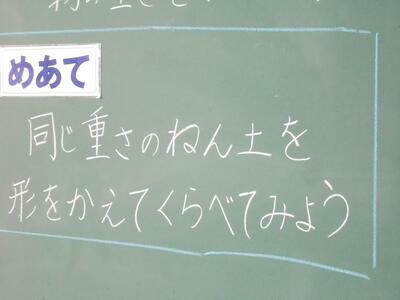 めあて
同じ重さのねん土を
形をかえてくらべてみよう